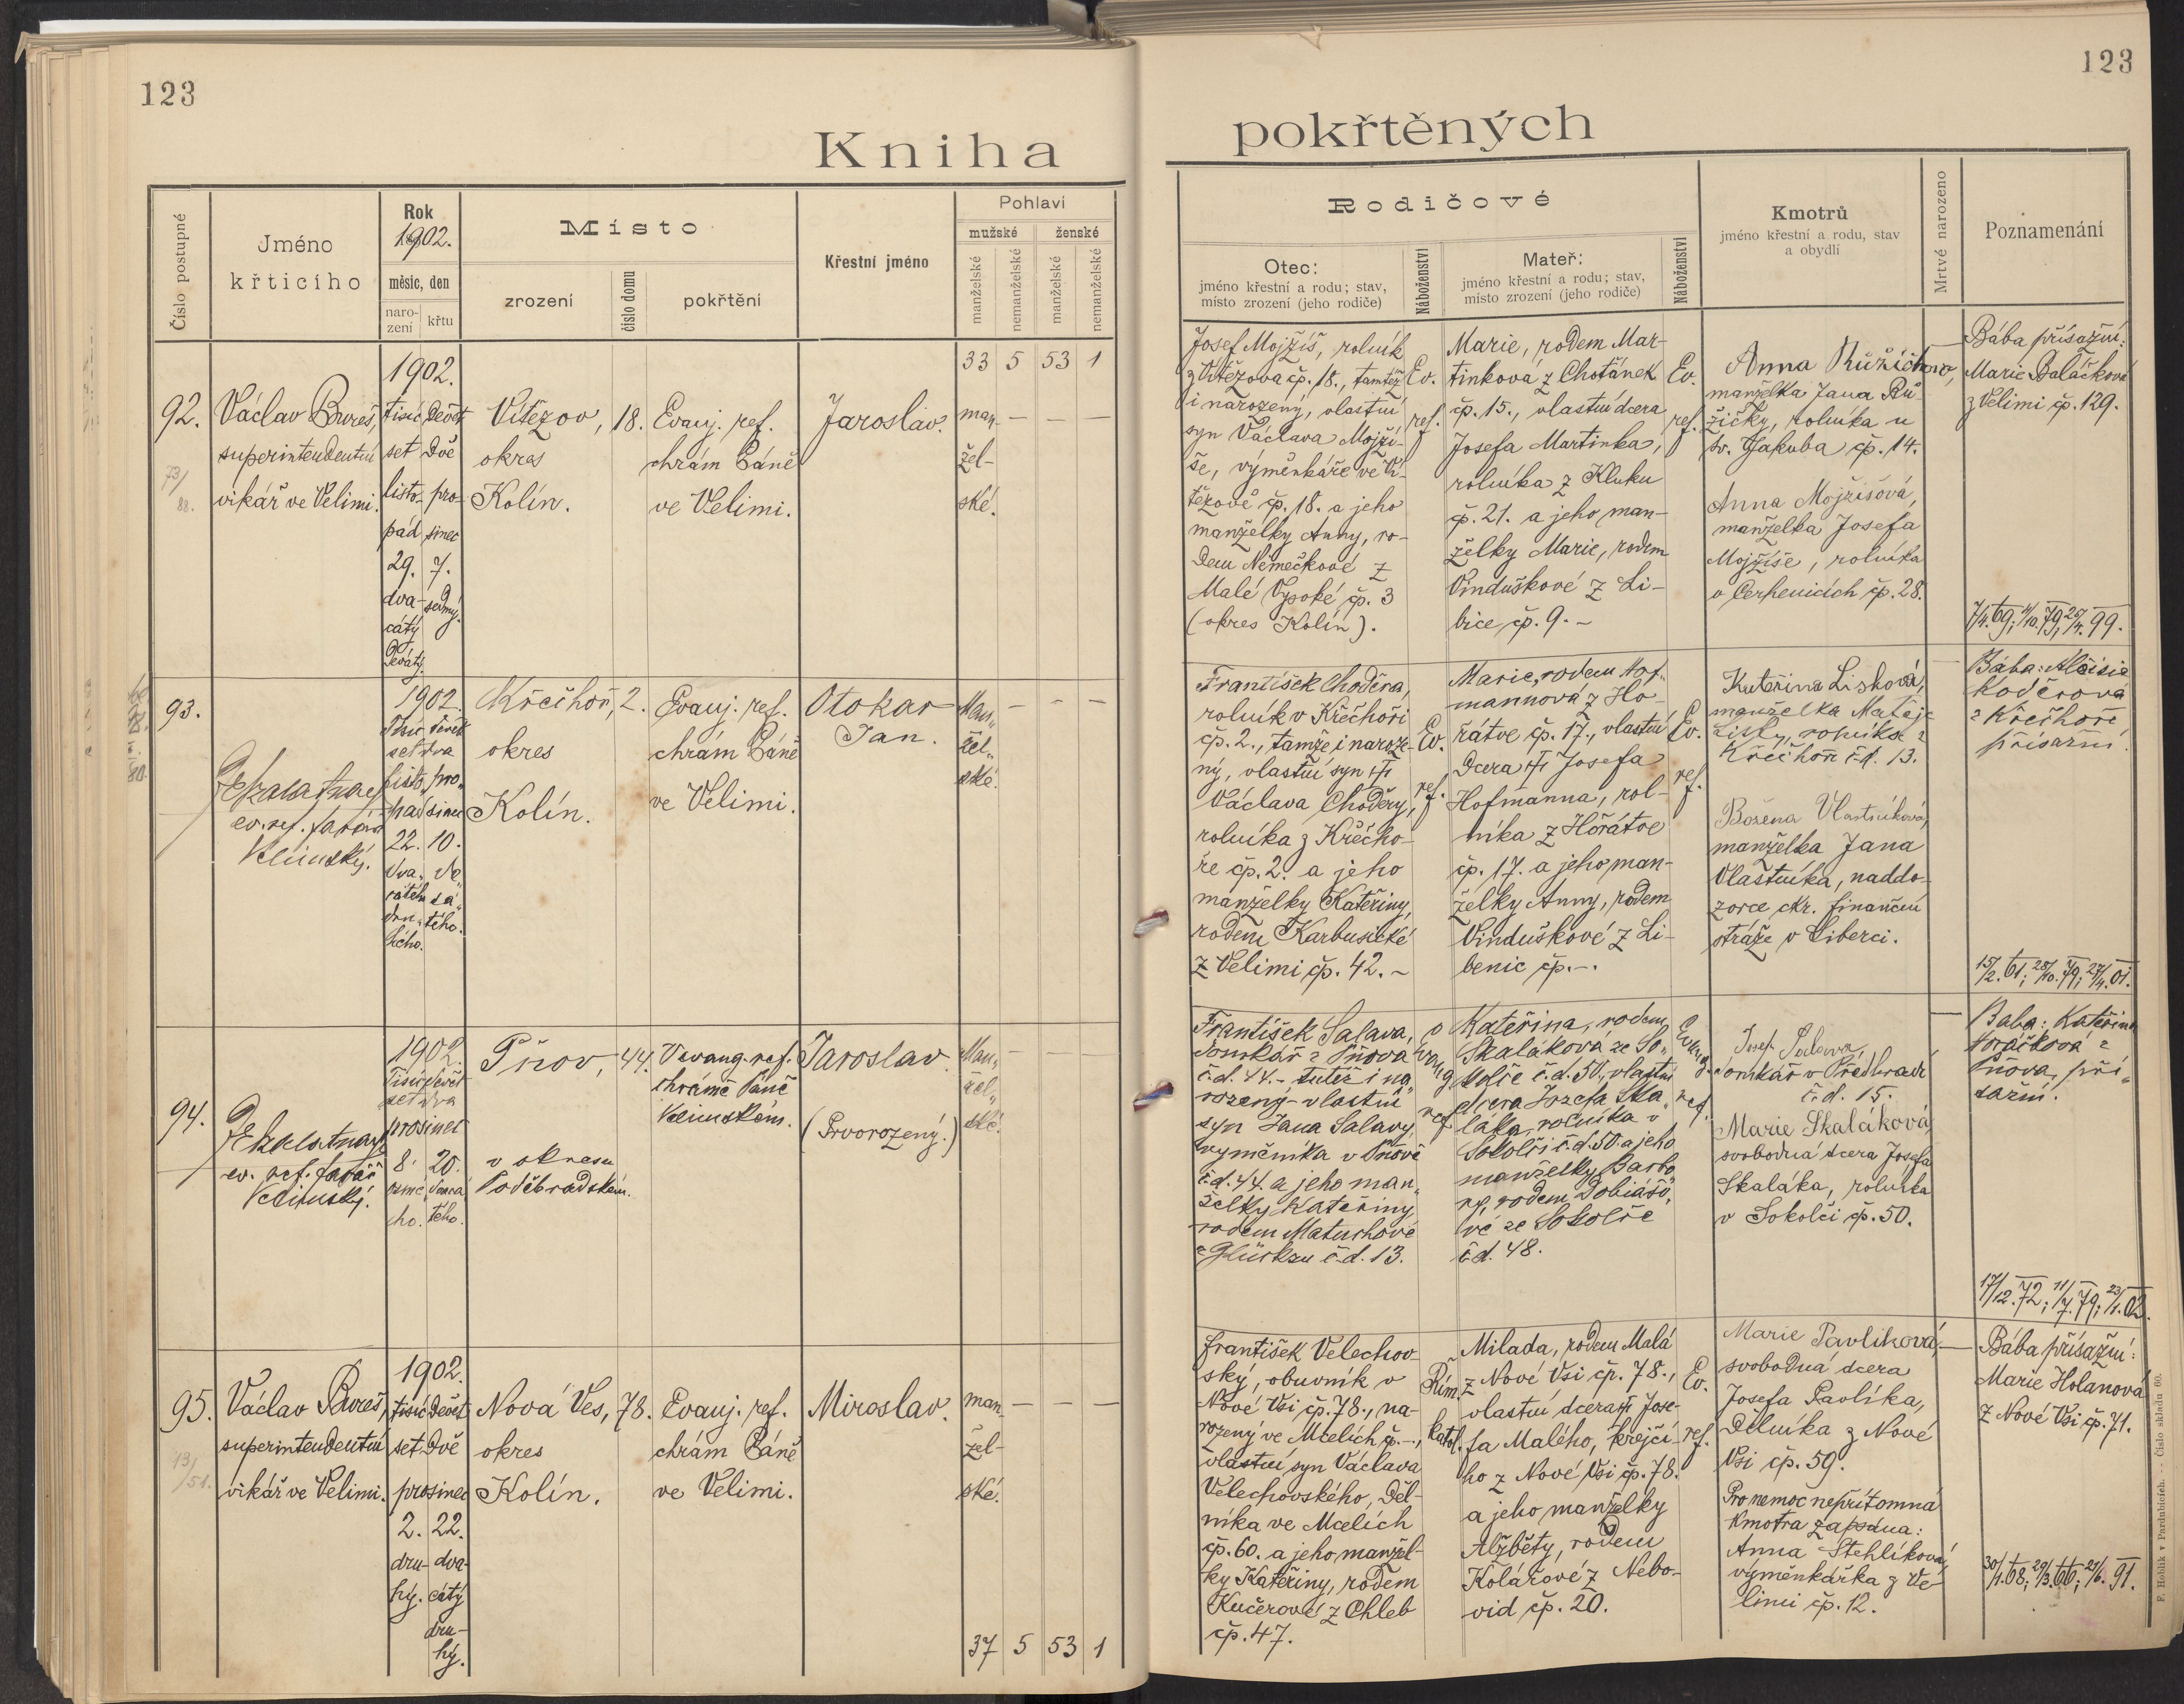 123
Kniha
Číslo postupné
Jméno
křticího
Rok
1902.
měsíc, den
naro-
zení
křtu
Místo
zrození
číslo domu
pokřtění
Křestní jméno
Pohlaví
mužské
ženské
manželské
nemanželské
manželské
nemanželské
33 5 53 1
92.
Václav Bureš,
superintendentní
vikář ve Velimi.
1902.
tisíc devět
set dvě
listo- pro-
pád sinec
29. 7.
dva- sedmý.
cátý
devátý.
Vítězov, 18.
okres
Kolín.
Evanj. ref.
chrám Páně
ve Velimi.
Jaroslav.
man-
žel-
ské.
93.
ev. ref. farář
Velimský.
1902.
Tisíc devět
set dva
listo„ pro„
pad sinec
22. 10.
dva„ de„
cátéh sá„
dru„ tého.
hého.
Křečhoř, 2.
okres
Kolín.
Evanj. ref.
chrám Páně
ve Velimi.
Otokar
Jan.
Man„
žel„
ské.
94.
ev. ref. farář
Velimský.
1902.
Tisíc devět
set dva
prosinec
8. 20.
osmé dvacá
ho. tého.
Pňov, 44.
v okresu
Poděbradském.
V evang. ref.
chrámě Páně
Velimském.
Jaroslav
(Prvorozený.)
Man„
žel„
ské.
95.
13/
/51.
Václav Bureš,
superintendentní
vikář ve Velimi.
1902.
tisíc devět
set dvě
prosinec
2. 22.
dru- dva-
hý. cátý
dru-
hý.
Nová Ves, 78.
okres
Kolín.
Evanj. ref.
chrám Páně
ve Velimi.
Miroslav.
man-
žel-
ské.
37 5 53 1
123
pokřtěných
Rodičové
Otec:
jméno křestní a rodu; stav,
místo zrození (jeho rodiče)
Náboženství
Mateř:
jméno křestní a rodu; stav,
místo zrození (jeho rodiče)
Náboženství
Kmotrů
jméno křestní a rodu, stav
a obydlí
Mrtvé narozeno
Poznamenání
Josef Mojžíš, rolník
z Vítězova čp. 18., tamtéž
i narozený, vlastní
syn Václava Mojží-
še, výměnkáře ve Ví-
tězově čp. 18. a jeho
manželky Anny, ro-
dem Němečkové z
Malé Vysoké čp. 3
(okres Kolín).
Ev.
ref.
Marie, rodem Mar-
tinková z Chotánek
čp. 15., vlastní dcera
Josefa Martinka,
rolníka z Kluku
čp. 21. a jeho man-
želky Marie, rodem
Vinduškové z Li-
bice čp. 9. -
Ev.
ref.
Anna Růžičkova,
manželka Jana Rů-
žičky, rolníka u
sv. Jakuba čp. 14.
Anna Mojžíšová,
manželka Josefa
Mojžíše, rolníka
v Cerhenicích čp. 28.
Bába přísažní:
Marie Baláčková
z Velimi čp. 129.
František Choděra,
rolník v Křečhoři
čp. 2., tamže i naroze-
ný, vlastní syn
Václava Choděry,
rolníka z Křečho-
ře čp. 2. a jeho
manželky Kateřiny,
rodem Karbusické
z Velimi čp. 42. -
Ev.
ref.
Marie, rodem Hof-
mannová z Ho-
řátve čp. 17., vlastní
dcera Josefa
Hofmanna, rol-
níka z Hořátve
čp. 17. a jeho man-
želky Anny, rodem
Vinduškové z Li-
benic čp. -.
Ev.
ref.
Kateřina Lisková,
manželka Matěje
Lisky, rolníka z
Křečhoř č.d. 13.
Božena Vlastníková,
manželka Jana
Vlastníka, naddo-
zorce ckr. finanční
stráže v Liberci.
Bába: Aloisie
Kočerová
z Křečhoře
přísažní.
František Salava,
domkář z Pňova
č.d. 44. - tutéž i na„
rozený - vlastní
syn Jana Salavy
výměníka v Pňově
č.d. 44. a jeho man„
želky Kateřiny
rodem Matuchové
z Glücksu č.d. 13.
Kateřina, rodem
Skaláková ze So„
kolče č.d. 50., vlastní
dcera Jozefa Ska„
láka, rolníka v
Sokolči č.d. 50. a jeho
manželky Barbo„
ry, rodem Dobiášo„
vé ze Sokolče
č.d. 48.
ref.
Josef Salava,
domkář v Předhradí
č.d. 15.
Marie Skaláková,
svobodná dcera Josefa
Skaláka, rolníka
v Sokolči čp. 50.
Baba: Kateřina
Horáčková z
Pňova, pří„
sažní.
František Velechov-
ský, obuvník v
Nové Vsi čp. 78., na-
rozený ve Mcelích č. -.,
vlastní syn Václava
Velechovského, děl-
níka ve Mcelích
čp. 60. a jeho manžel-
ky Kateřiny, rodem
Kučerové z Chleb
čp. 47.
Řím.
katol.
Milada, rodem Malá
z Nové Vsi čp. 78.,
vlastní dcera Jose-
fa Malého, krejčí-
ho z Nové Vsi čp. 78.
a jeho manželky
Alžběty, rodem
Kolářové z Nebo-
vid čp. 20.
Ev.
ref.
Marie Pavlíková,
svobodná dcera
Josefa Pavlíka,
dělníka z Nové
Vsi čp. 59.
Pro nemoc nepřítomná
kmotra zapsána:
Anna Stehlíková,
výměnkářka z Ve-
limi čp. 12.
Bába přísažní:
Marie Holanová
z Nové Vsi čp. 71.
F. Hoblík v Pardubicích. -- Číslo skladu 60.